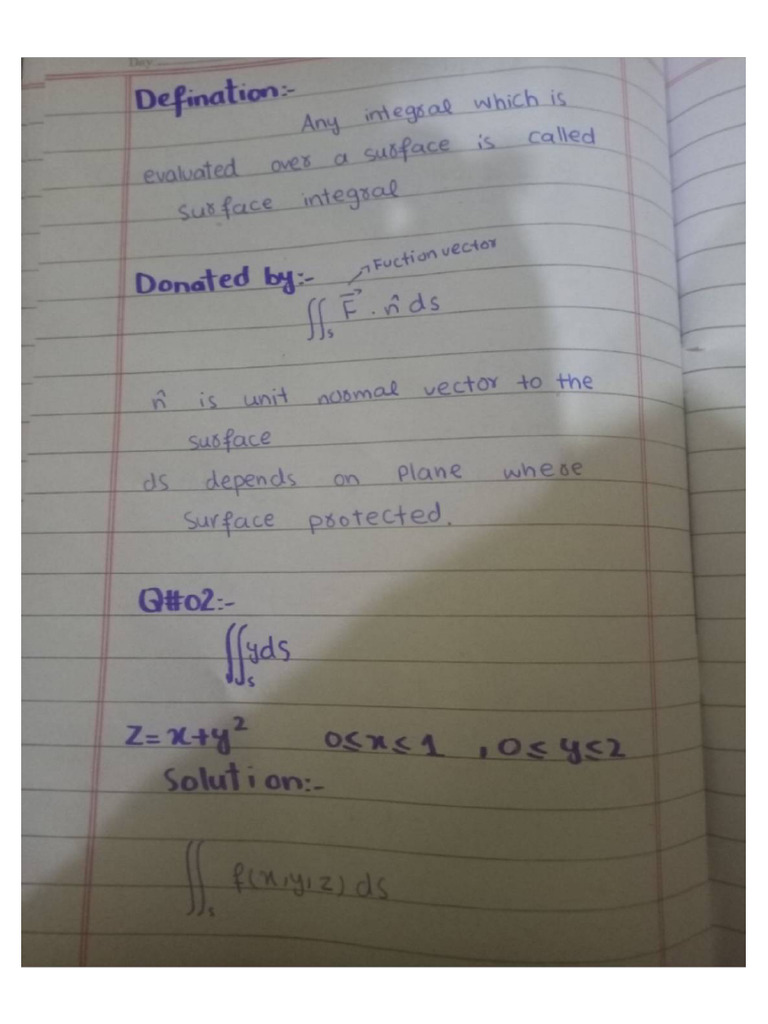 Day
Defination:-
Any integral which is
evaluated over a surface is called
surface integral
Donated by:- → Fuction vector
∬ₛ F⃗ . n̂ ds
n̂ is unit normal vector to the
surface
ds depends on plane where
surface protected.
Q#02:-
∬ₛ yds
Z=x+y² 0≤x≤1 , 0≤y≤2
Solution:-
∬ₛ f(x,y,z) ds